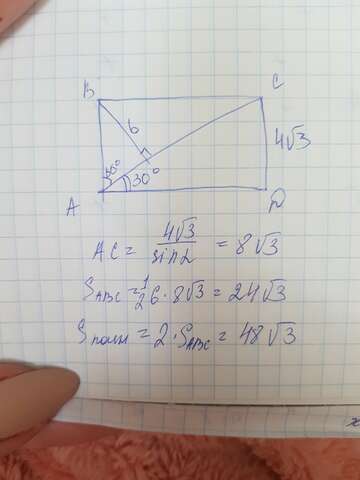 B
C
6
4√3
60°
30°
A
D
AC = 4√3 / sin∠ = 8√3
S_ABC = 1/2 6 · 8√3 = 24√3
Sполн = 2 · S_ABC = 48√3